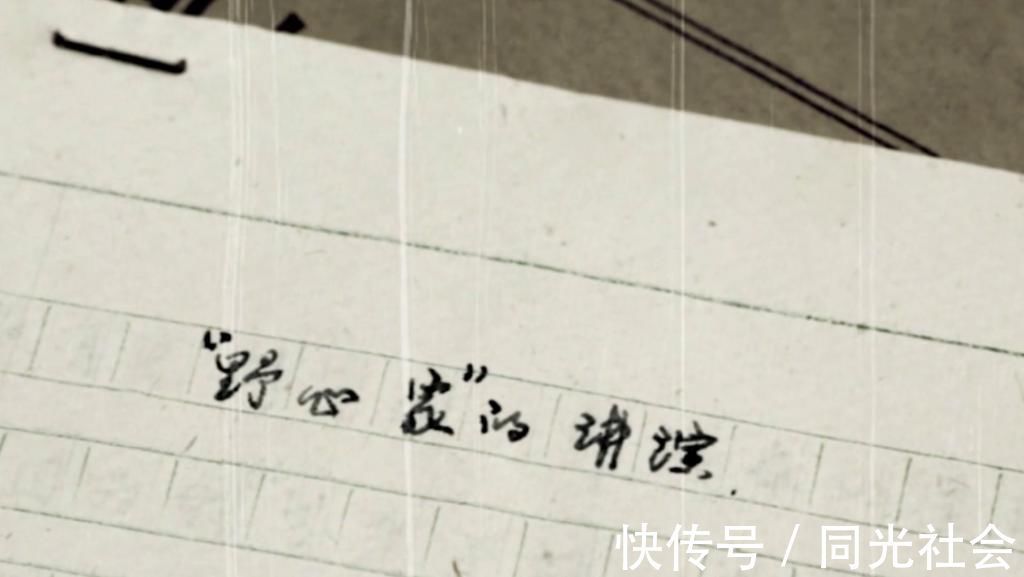 “野心家”的讲演.
快传号 / 同光社会